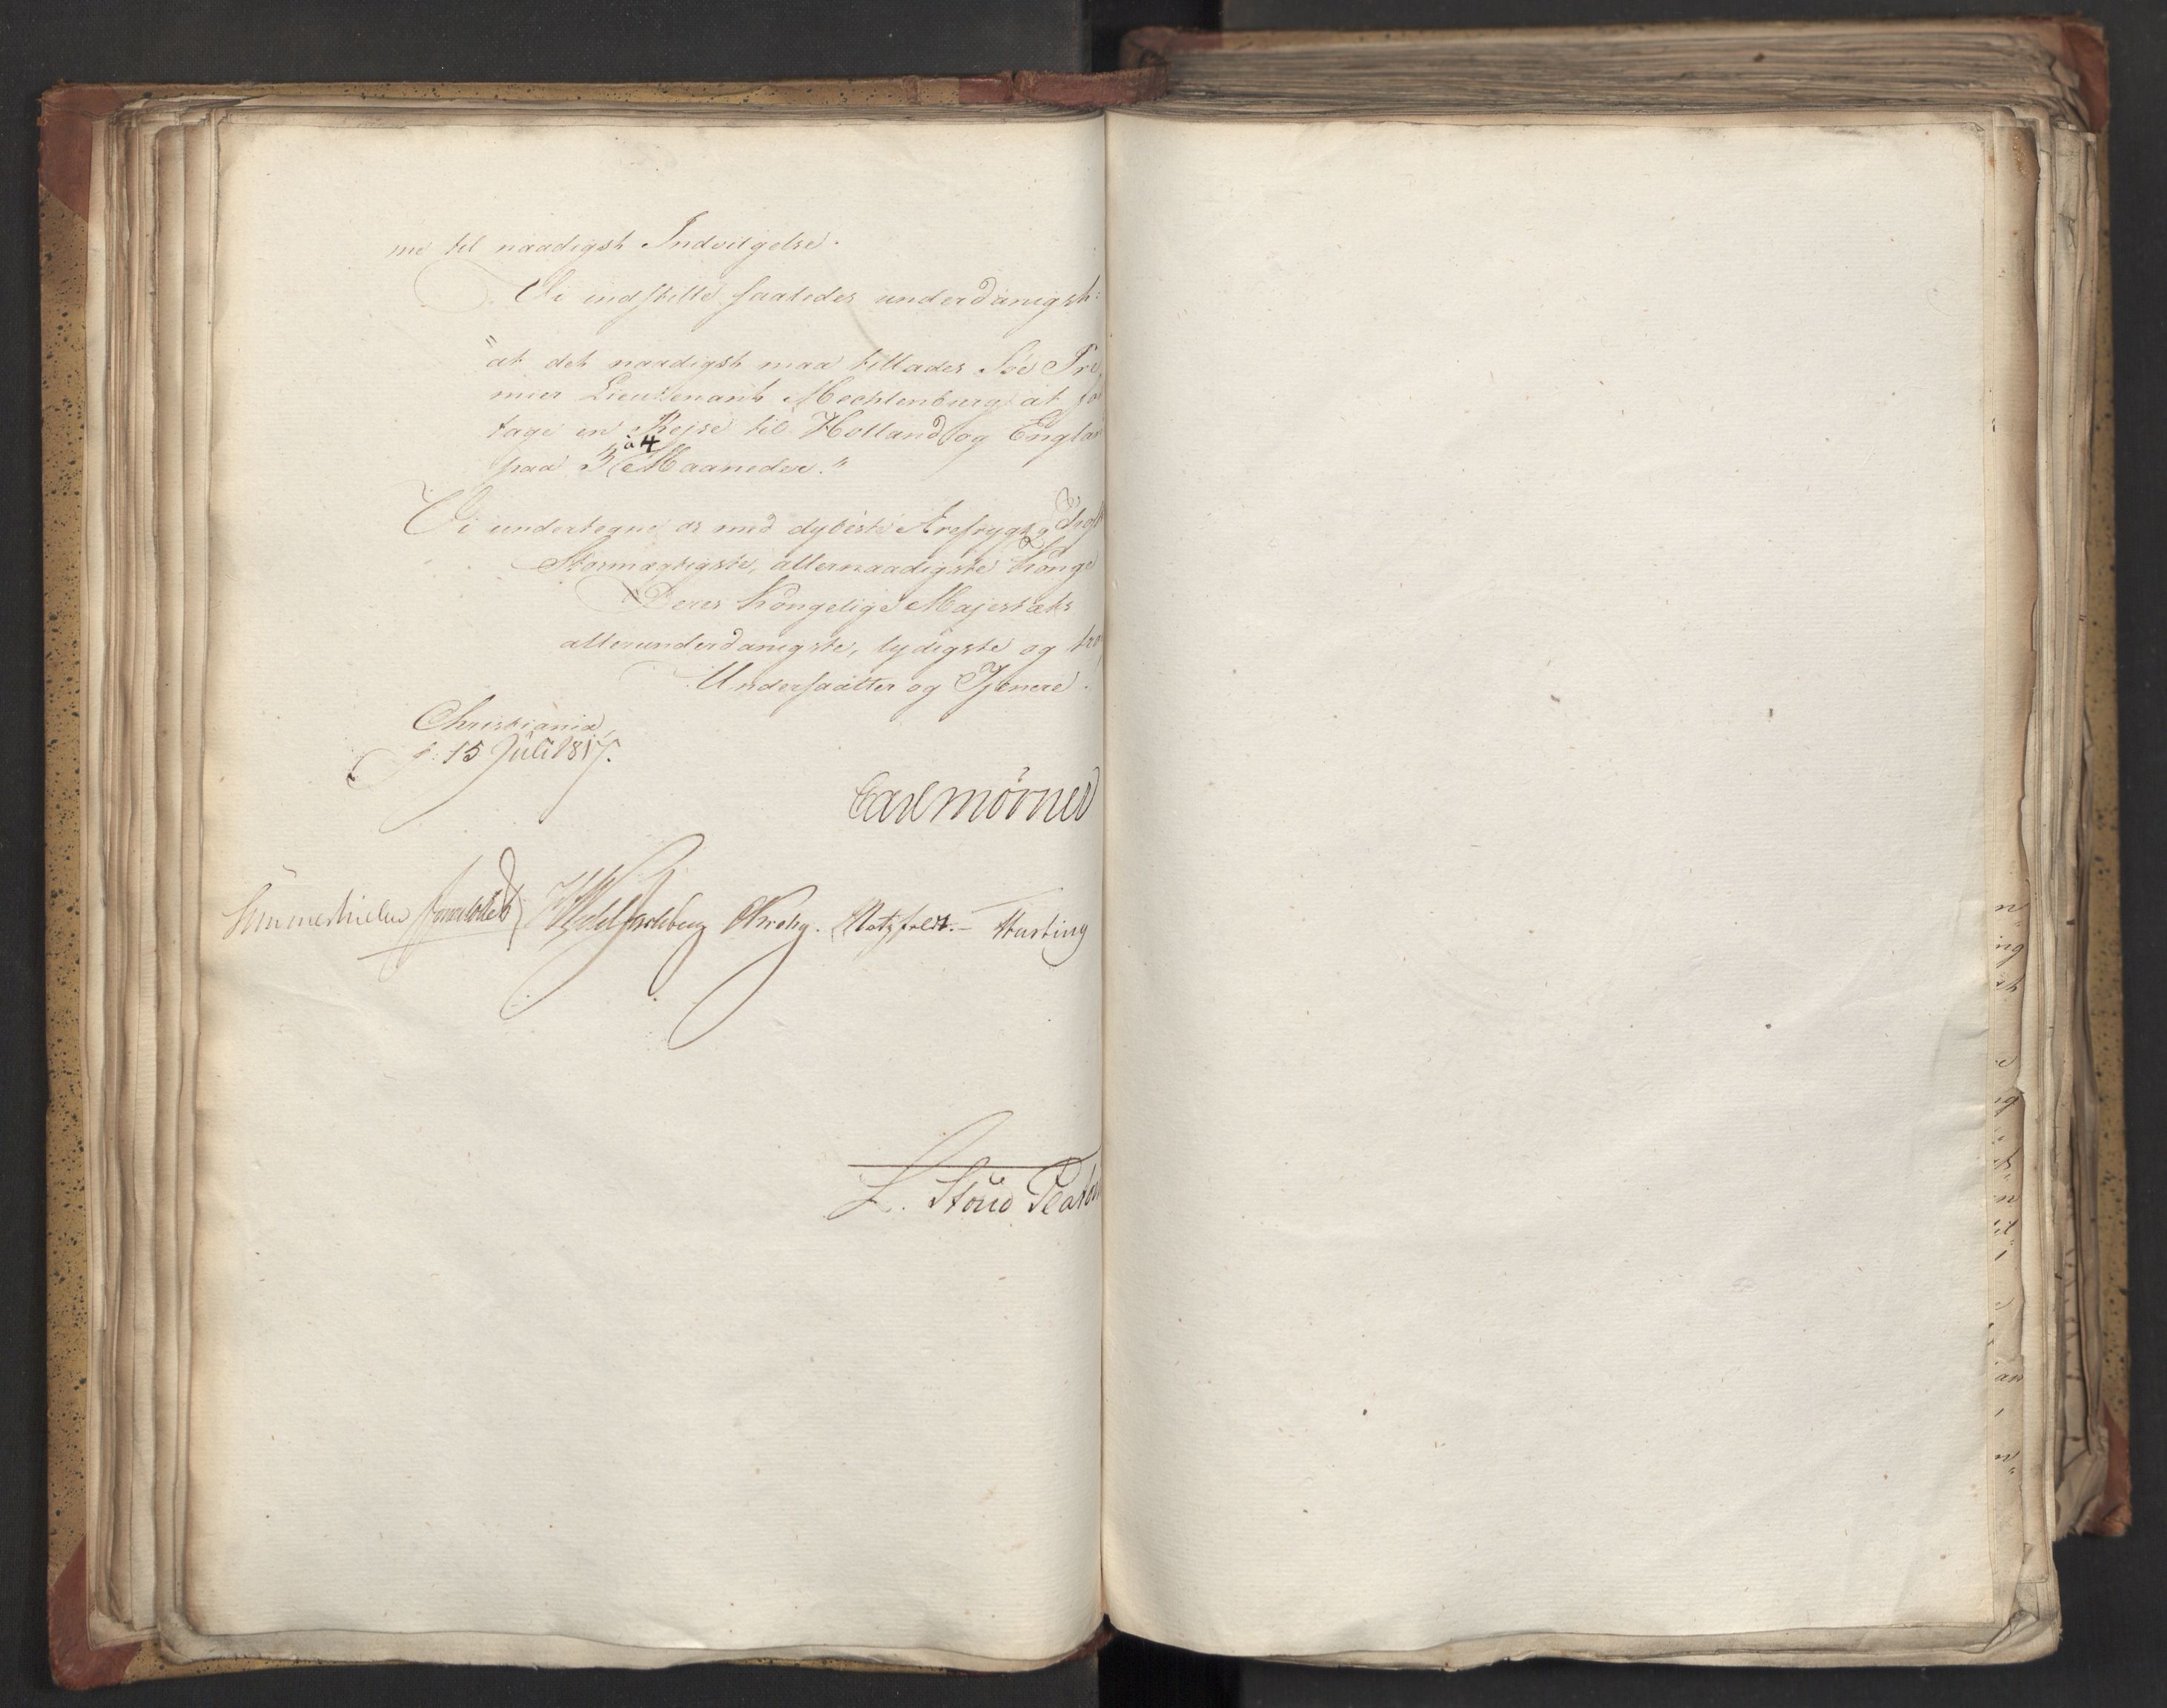 me til naadigst Indvilgelse.
Vi indstille saaledes underdanigst:
"at det naadigst maa tillades Søe Pre
mier Lieutenant Mechlenburg at fo
tage en Rejse til Holland og Englan
paa 3 à 4 Maaneder."
Vi undertegne os med dybeste Ærefrygt og
Stormægtigste, allernaadigste Konge
Deres Kongelige Majestæts
allerunderdanigste, lydigste og tro
Undersaatter og Tjenere.
Christiania,
d: 15 Juli 1817.
Carl Mörner
Sommerhielm Wedel Jarlsberg Krohg. Motzfeldt. Hasting
L. Stoud Plato